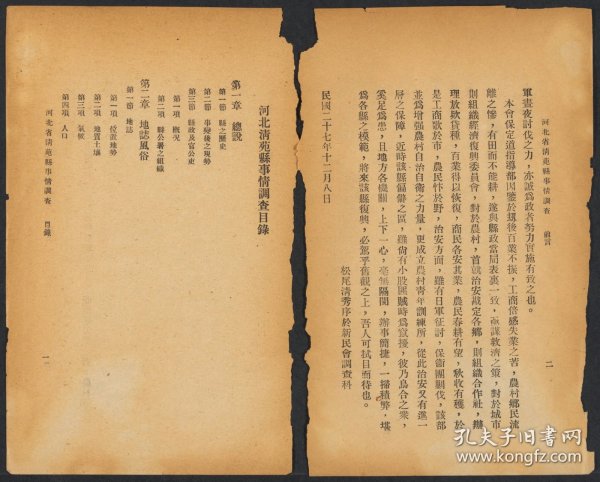 河北省清苑縣事情調查　前言
二
軍盡夜討伐之力，亦誠爲政者努力實施有致之也。
本會保定道指導部因鑒於刧後百業不振，工商倍感失業之苦，農村鄉民流
離之慘，有田而不能耕，遂與縣政當局表裏一致，亟謀救濟之策，對於城市
則組織經濟復興委員會，對於農村，首就治安觳定各鄉，則組織合作社，辦
理放欵貸種，百業得以恢復，商民各安其業，農民春耕有望，秋收有穫，於
是工商歌於市，農民忭於野，治安方面，雖有日軍征討，保衛團剿伐，該部
並爲增强農村自治自衛之力量，更成立農村靑年訓練所，從此治安又有進一
層之保障，近時該縣偏僻之區，雖尙有小股匪賊時爲竄擾，彼乃烏合之衆，
奚足爲患，且地方各機關，上下一心，毫無隔閡，辦事簡捷，一掃積弊，堪
爲各縣之模範，將來該縣復興，必駕乎舊觀之上，吾人可拭目而待也。
松尾淸秀序於新民會調查科
民國二十七年十二月八日
河北淸苑縣事情調查目錄
第一章　總說
第一節　縣之歷史
第二節　事變後之現勢
第三節　縣政及官公吏
第一項　概况
第二項　縣公署之組織
第二章　地誌風俗
第一節　地誌
第一項　位置地勢
第二項　地質土壤
第三項　氣候
第四項　人口
河北省清苑縣事情調查　目錄
一
孔夫子旧书网
www.kongfz.com